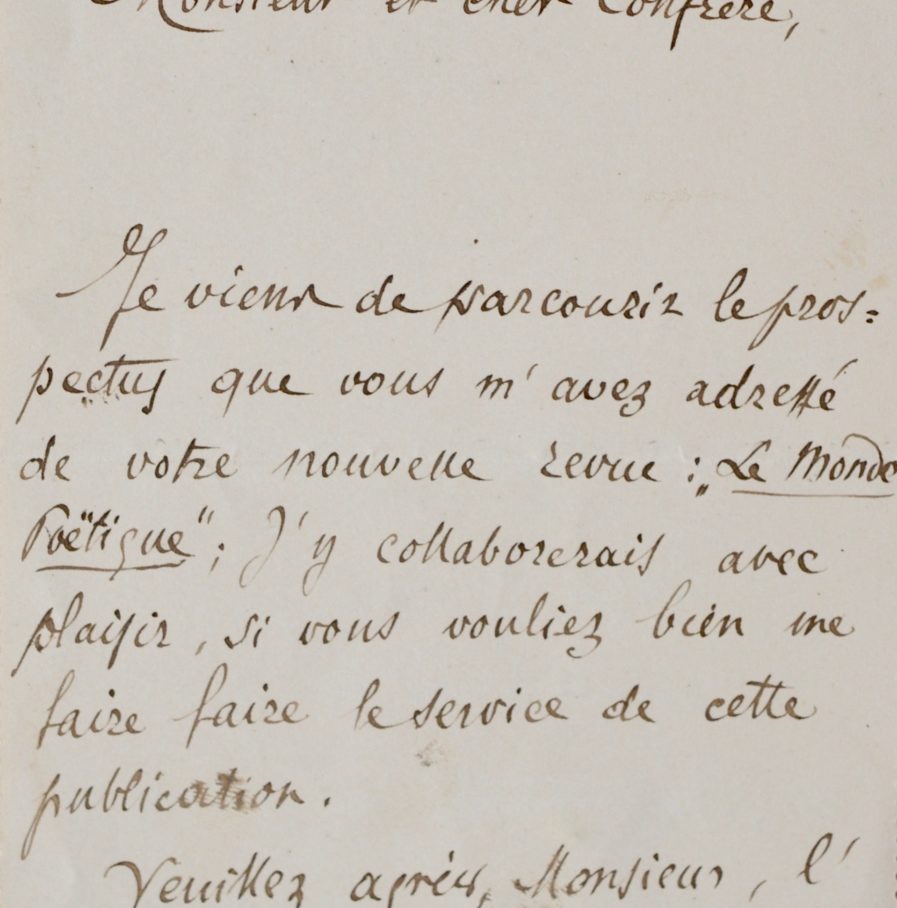 Monsieur et cher Confrère,
Je viens de parcourir le pros=
pectus que vous m'avez adressé
de votre nouvelle revue : „Le Monde
Poëtique"; J'y collaborerais avec
plaisir, si vous vouliez bien me
faire faire le service de cette
publication.
Veuillez agréer, Monsieur, l'